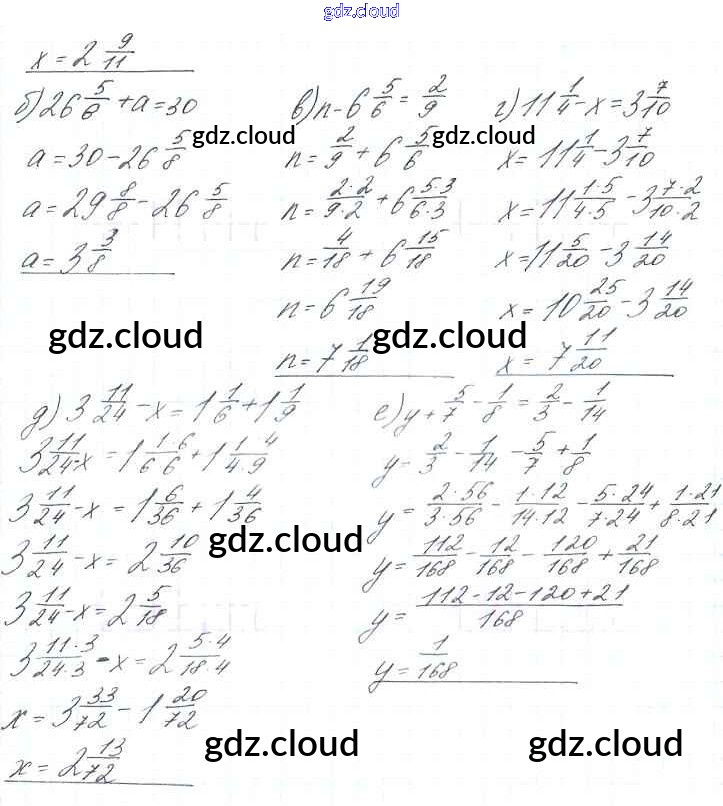 gdz.cloud
x = 2 9/11
б) 26 5/8 + a = 30
a = 30 - 26 5/8
a = 29 8/8 - 26 5/8
a = 3 3/8
в) n - 6 5/6 = 2/9
n = 2/9 + 6 5/6
n = 2·2/9·2 + 6 5·3/6·3
n = 4/18 + 6 15/18
n = 6 19/18
n = 7 1/18
г) 11 1/4 - x = 3 7/10
x = 11 1/4 - 3 7/10
x = 11 1·5/4·5 - 3 7·2/10·2
x = 11 5/20 - 3 14/20
x = 10 25/20 - 3 14/20
x = 7 11/20
gdz.cloud
gdz.cloud
gdz.cloud
gdz.cloud
д) 3 11/24 - x = 1 1/6 + 1 1/9
3 11/24 - x = 1 1·6/6·6 + 1 1·4/4·9
3 11/24 - x = 1 6/36 + 1 4/36
3 11/24 - x = 2 10/36
3 11/24 - x = 2 5/18
3 11·3/24·3 - x = 2 5·4/18·4
x = 3 33/72 - 1 20/72
x = 2 13/72
е) y + 5/7 - 1/8 = 2/3 - 1/14
y = 2/3 - 1/14 - 5/7 + 1/8
y = 2·56/3·56 - 1·12/14·12 - 5·24/7·24 + 1·21/8·21
y = 112/168 - 12/168 - 120/168 + 21/168
y = 112-12-120+21/168
y = 1/168
gdz.cloud
gdz.cloud
gdz.cloud